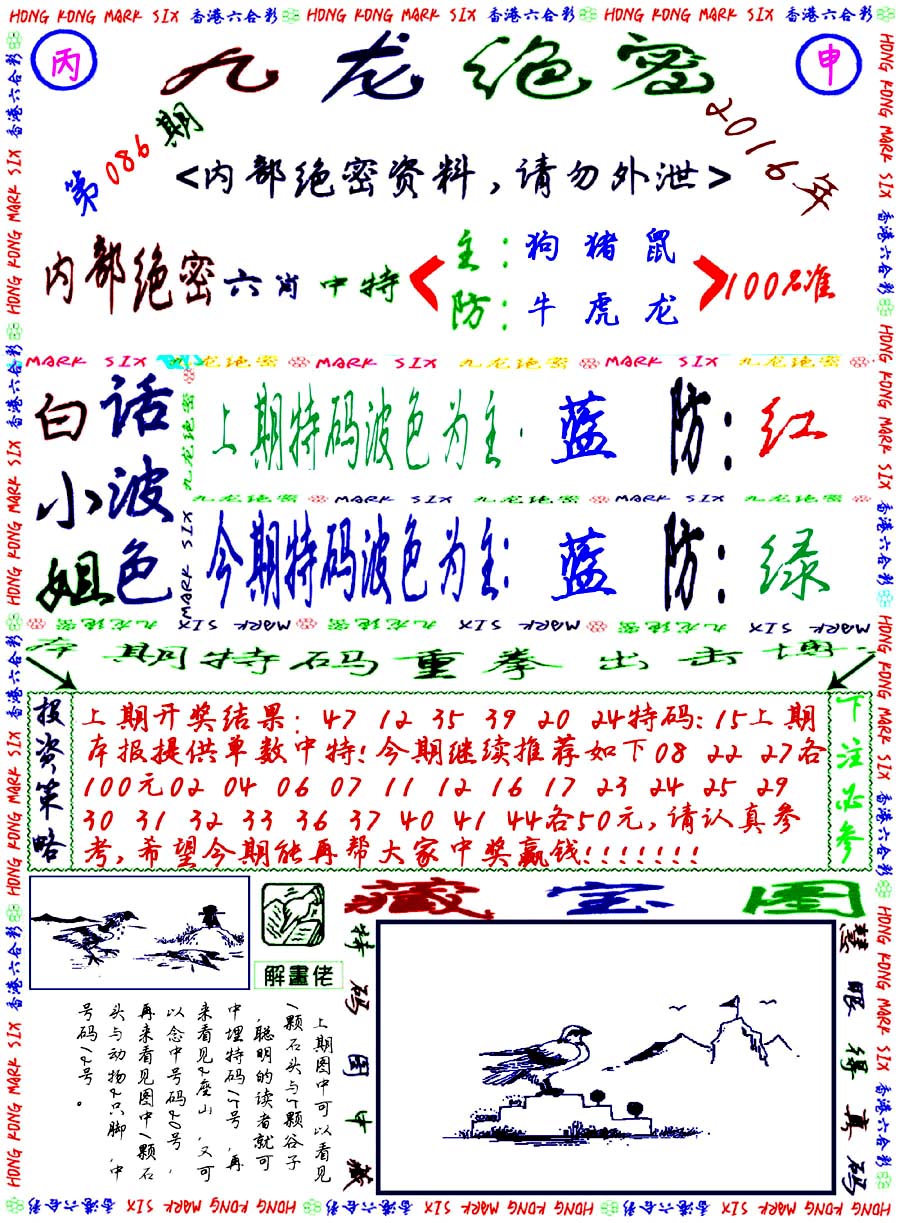 HONG KONG MARK SIX 香港六合彩 HONG KONG MARK SIX 香港六合彩 HONG KONG MARK SIX 香港六合彩
丙
九龙绝密
申
第086期
2016年
<内部绝密资料,请勿外泄>
内部绝密六肖中特
主:狗 猪 鼠
防:牛 虎 龙
100%准
MARK SIX 九龙绝密 MARK SIX 九龙绝密 MARK SIX 九龙绝密
白话小波姐色
上期特码波色为主: 蓝 防: 红
九龙绝密 MARK SIX 九龙绝密 MARK SIX 九龙绝密
今期特码波色为主: 蓝 防: 绿
MARK SIX 九龙绝密 MARK SIX 九龙绝密 MARK SIX 九龙绝密
本期特码重拳出击博
投资策略
上期开奖结果: 47 12 35 39 20 24特码:15上期
本报提供单数中特!今期继续推荐如下08 22 27各
100元02 04 06 07 11 12 16 17 23 24 25 29
30 31 32 33 36 37 40 41 44各50元,请认真参
考,希望今期能再帮大家中奖赢钱!!!!!!!
下注必参
藏宝图
解畫佬
特码图中藏
慧眼得真码
上期图中可以看见
1颗石头与5颗谷子
,聪明的读者就可
中埋特码15号,再
来看见2座山,又可
以念中号码20号,
再来看见图中1颗石
头与动物2只脚,中
号码12号。
HONG KONG MARK SIX 香港六合彩 HONG KONG MARK SIX 香港六合彩 HONG KONG MARK SIX 香港六合彩